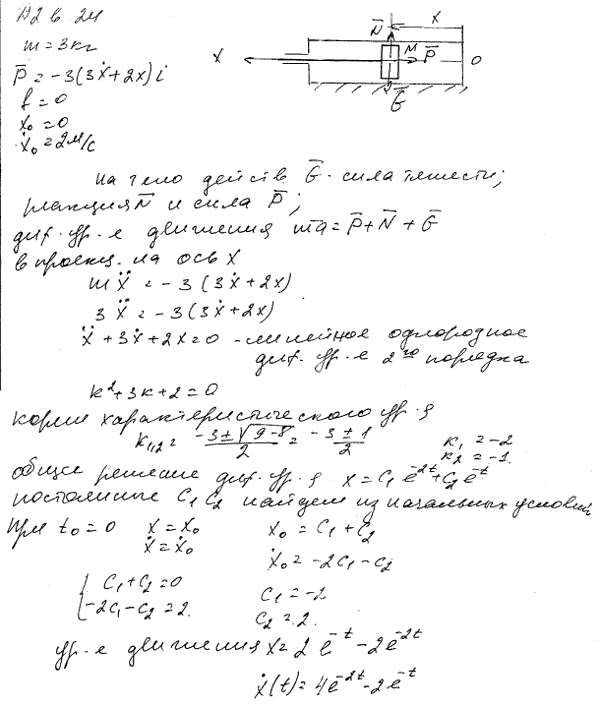 Д2 в 24
m = 3кг
P̄ = -3(3ẋ+2x) i
f = 0
x₀ = 0
ẋ₀ = 2м/с
N̄ X
X M P̄ O
Ḡ
на тело действ Ḡ - сила тяжести;
реакция N̄ и сила P̄;
диф. ур-е движения mā = P̄ + N̄ + Ḡ
в проекц. на ось X
m ẍ = -3 (3ẋ+2x)
3 ẍ = -3(3ẋ+2x)
ẍ + 3ẋ + 2x = 0 - линейное однородное
диф. ур-е 2го порядка
k² + 3k + 2 = 0
корни характеристического ур-я
k₁,₂ = (-3 ± √(9-8))/2 = (-3 ± 1)/2 k₁ = -2
k₂ = -1.
общее решение диф. ур-я x = C₁ e^(-2t) + C₂ e^(-t)
постоянные C₁ C₂ найдем из начальных условий
При t₀ = 0 x = x₀ x₀ = C₁ + C₂
ẋ = ẋ₀ ẋ₀ = -2C₁ - C₂
{ C₁ + C₂ = 0 C₁ = -2
-2C₁ - C₂ = 2. C₂ = 2.
ур-е движения x = 2 e^(-t) - 2e^(-2t)
ẋ(t) = 4e^(-2t) - 2e^(-t)